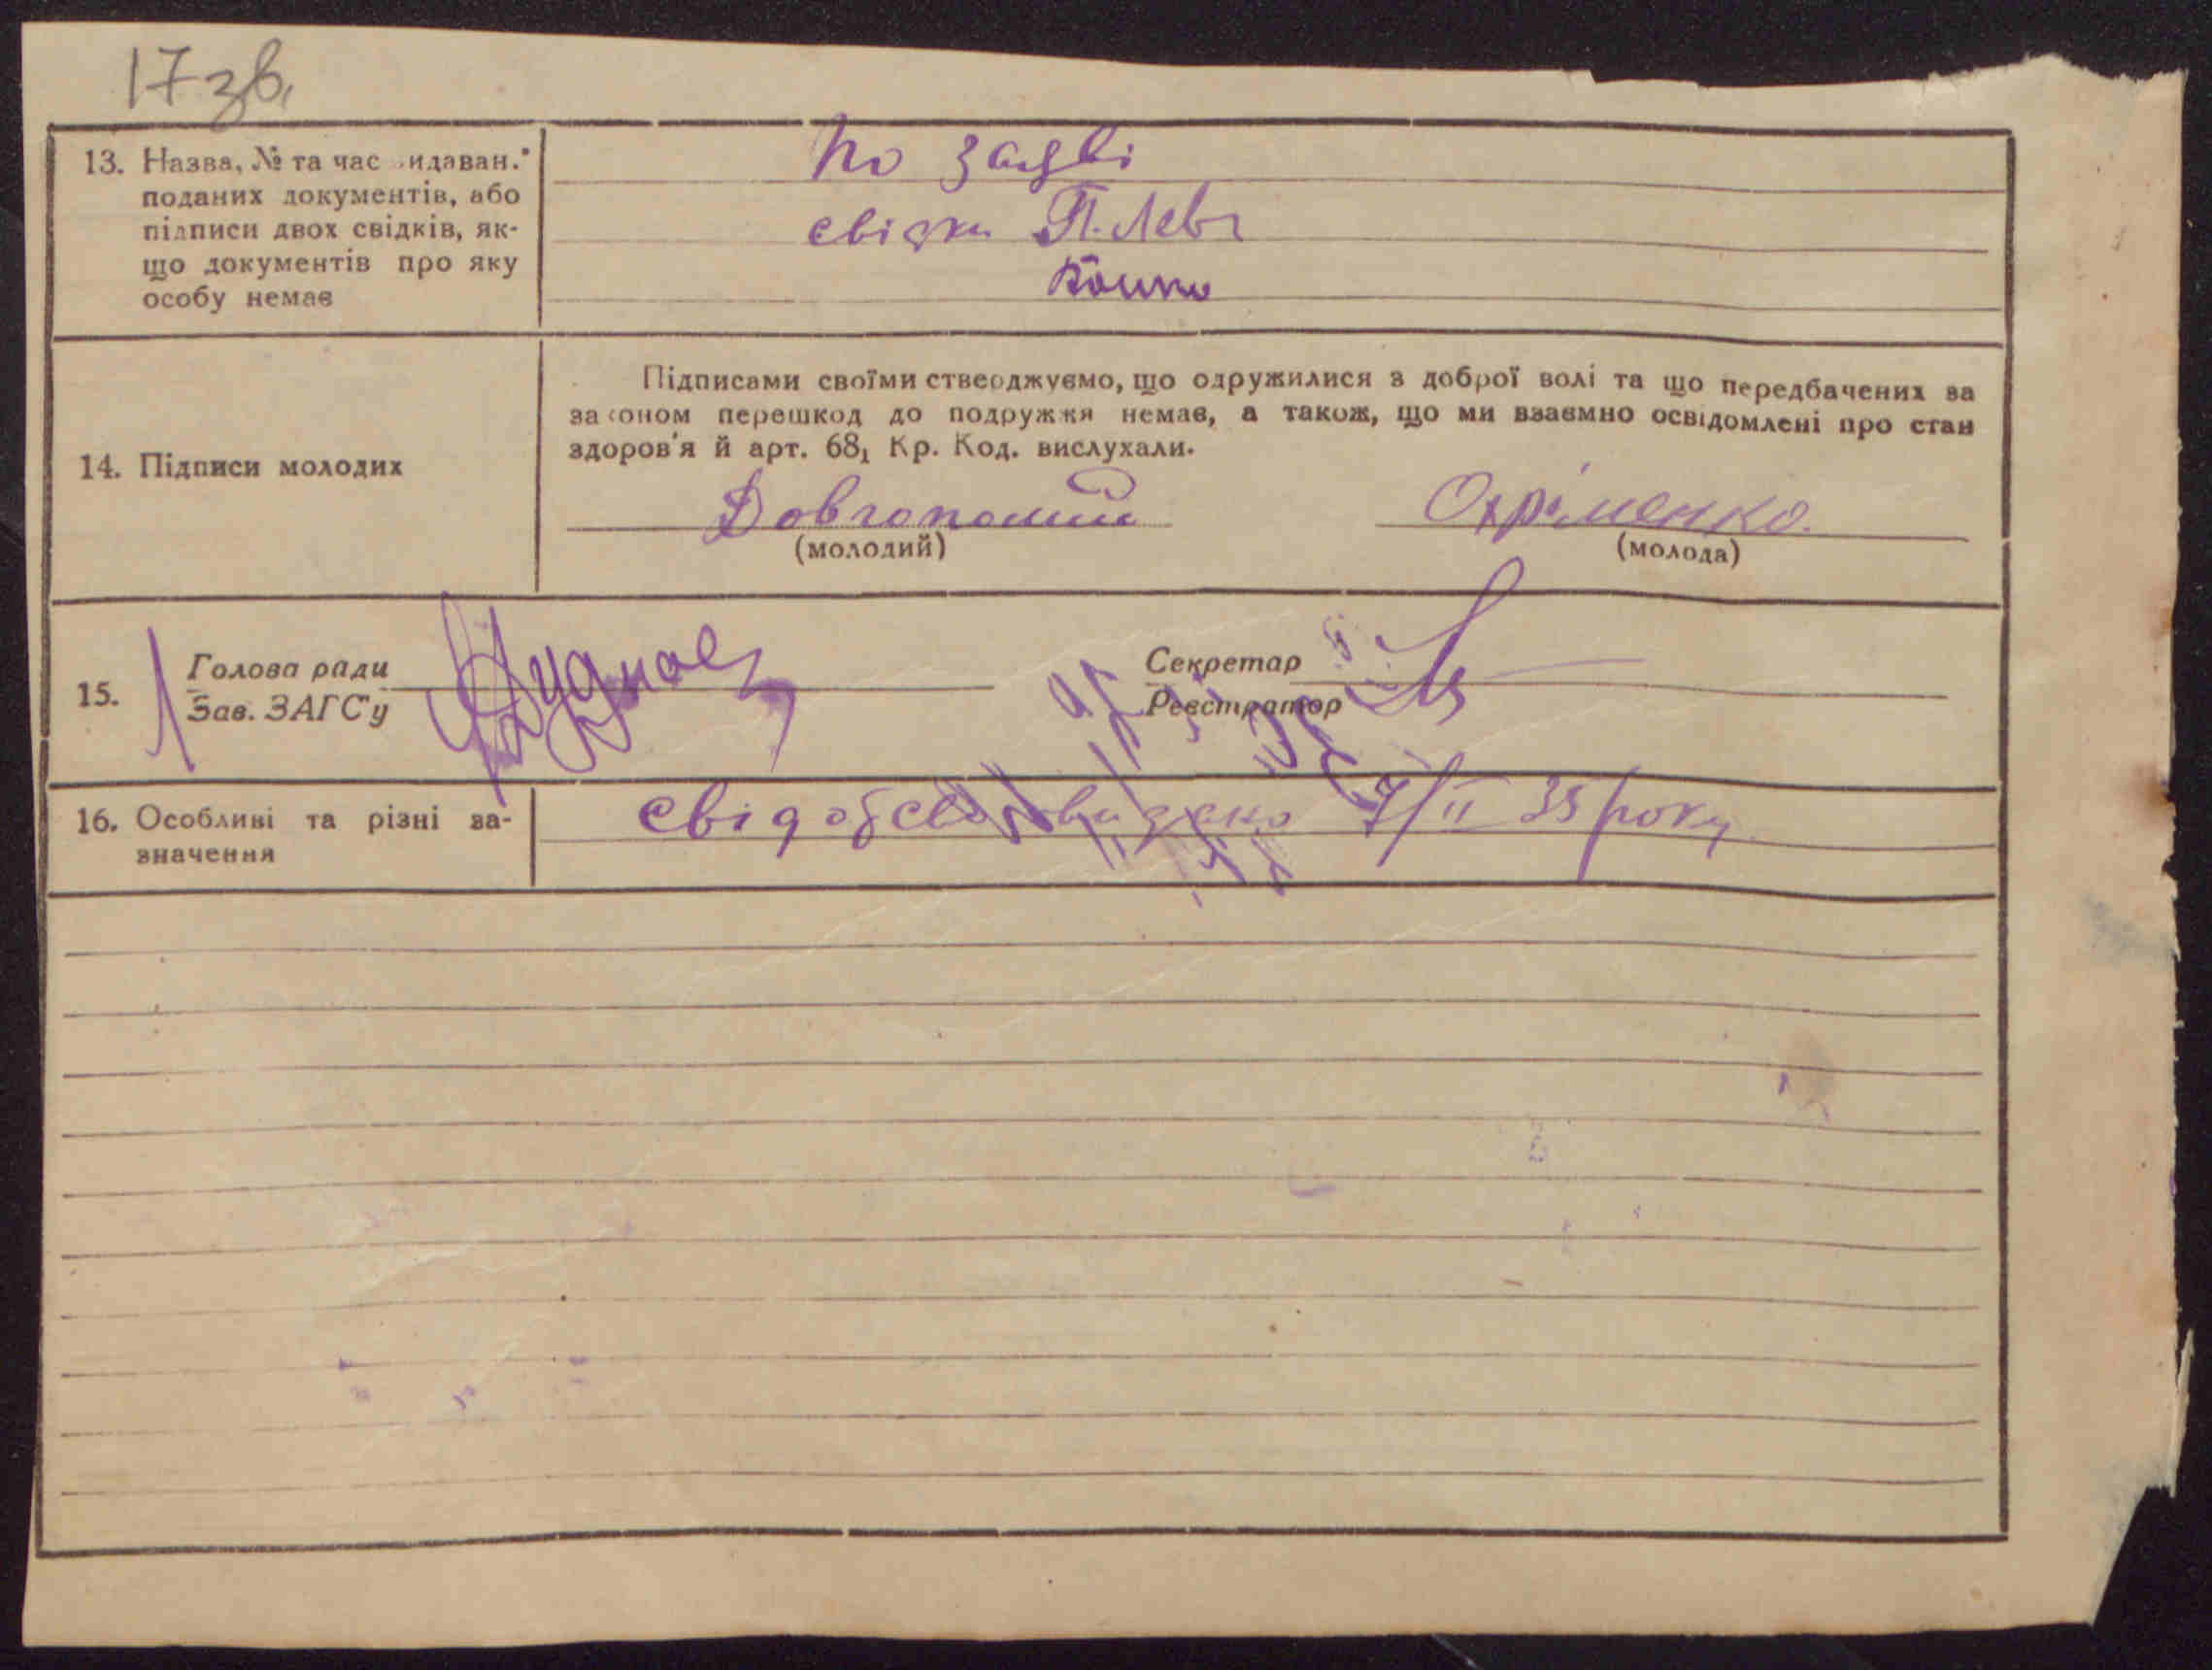 17 зв.
13. Назва, № та час видаван.
поданих документів, або
підписи двох свідків, як-
що документів про яку
особу немає
по заяві
свідки П. Лев
14. Підписи молодих
Підписами своїми стверджуємо, що одружилися з доброї волі та що передбачених за
законом перешкод до подружжя немає, а також, що ми взаємно освідомлені про стан
здоров'я й арт. 68₁ Кр. Код. вислухали.
Довгополий
Охріменко.
(молодий)
(молода)
15.
Голова ради
Зав. ЗАГС'у
Секретар
Реєстратор
16. Особливі та різні за-
значення
свідоцтво видано 7/II 35 року